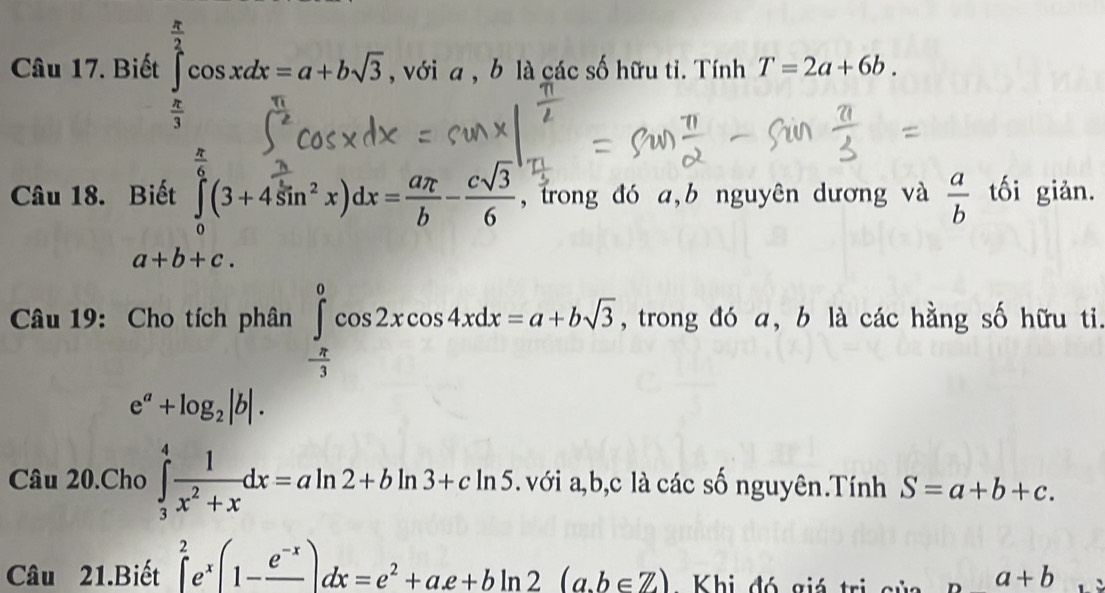 Câu 17. Biết \int_{\frac{\pi}{3}}^{\frac{\pi}{2}} cos xdx = a + b\sqrt{3}, với a, b là các số hữu tỉ. Tính T = 2a + 6b.
\int_{\frac{\pi}{3}}^{\frac{\pi}{2}} cosxdx = sinx|_{\frac{\pi}{3}}^{\frac{\pi}{2}} = sin\frac{\pi}{2} - sin\frac{\pi}{3} =
Câu 18. Biết \int_{0}^{\frac{\pi}{6}} (3 + 4sin^2 x)dx = \frac{a\pi}{b} - \frac{c\sqrt{3}}{6}, trong đó a,b nguyên dương và \frac{a}{b} tối giản.
a + b + c.
Câu 19: Cho tích phân \int_{-\frac{\pi}{3}}^{0} cos 2x cos 4xdx = a + b\sqrt{3}, trong đó a, b là các hằng số hữu tỉ.
e^a + log_2 |b|.
Câu 20.Cho \int_{3}^{4} \frac{1}{x^2 + x}dx = a ln 2 + b ln 3 + c ln 5. với a,b,c là các số nguyên.Tính S = a + b + c.
Câu 21.Biết \int^{2} e^x (1 - \frac{e^{-x}}{}) dx = e^2 + a.e + b ln 2 (a,b ∈ Z). Khi đó giá trị của a + b